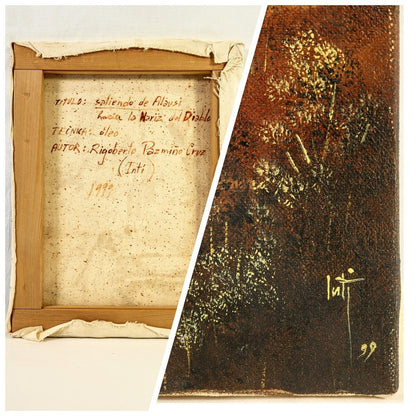 TITULO: saliendo de Alausí
hacia la Nariz del Diablo
TECNICA: óleo
AUTOR: Rigoberto Pazmiño Cruz
(Inti)
1999
Inti
99